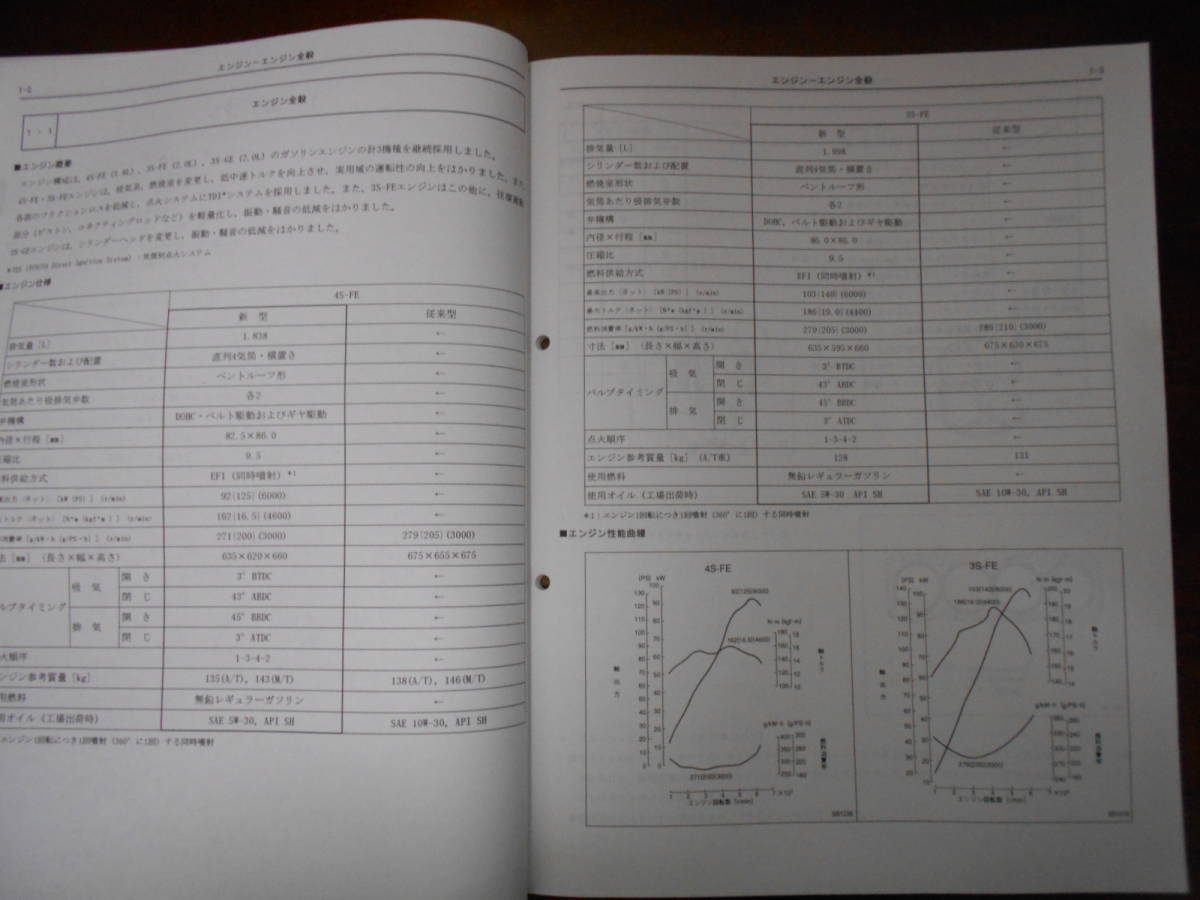 1-2
エンジン－エンジン全般
1 - 1
エンジン全般
■エンジン概要
エンジン構成は、4S-FE (1.8L) 、3S-FE (2.0L) 、3S-GE (2.0L) のガソリンエンジンの計3機種を継続採用しました。
4S-FE・3S-FEエンジンは、吸気系、燃焼室を変更し、低中速トルクを向上させ、実用域の運転性の向上をはかりました。また
各部のフリクションロスを低減し、点火システムにTDI*システムを採用しました。また、3S-FEエンジンはこの他に、往復運動
部分（ピストン、コネクティングロッドなど）を軽量化し、振動・騒音の低減をはかりました。
3S-GEエンジンは、シリンダーヘッドを変更し、振動・騒音の低減をはかりました。
エンジン仕様
4S-FE
新 型 従来型
排気量 [L] 1.838 ←
シリンダー数および配置 直列4気筒・横置き ←
燃焼室形状 ペントルーフ形 ←
気筒あたり吸排気弁数 各2 ←
弁機構 DOHC・ベルト駆動およびギヤ駆動 ←
内径×行程 [mm] 82.5×86.0 ←
圧縮比 9.5 ←
料供給方式 EFI（同時噴射）*1 ←
出力〈ネット〉 [kW {PS} ] (r/min) 92{125}(6000) ←
トルク〈ネット〉 [N*m {kgf*m} ] (r/min) 162{16.5}(4600) ←
[g/kW・h {g/PS・h} ] (r/min) 271{200}(3000) 279{205}(3000)
法 [mm] （長さ×幅×高さ） 635×620×660 675×655×675
ルブタイミング 吸 気 開 き 3° BTDC ←
閉 じ 43° ABDC ←
排 気 開 き 45° BBDC ←
閉 じ 3° ATDC ←
火順序 1-3-4-2 ←
ンジン参考質量 [kg] 135(A/T), 143(M/T) 138(A/T), 146(M/T)
用燃料 無鉛レギュラーガソリン ←
用オイル（工場出荷時） SAE 5W-30, API SH SAE 10W-30, API SH
エンジン1回転につき1回噴射 (360° に1回) する同時噴射
エンジン－エンジン全般
1-3
3S-FE
新 型 従来型
排気量 [L] 1.998 ←
シリンダー数および配置 直列4気筒・横置き ←
燃焼室形状 ペントルーフ形 ←
気筒あたり吸排気弁数 各2 ←
弁機構 DOHC、ベルト駆動およびギヤ駆動 ←
内径×行程 [mm] 86.0×86.0 ←
圧縮比 9.5 ←
燃料供給方式 EFI（同時噴射）*1 ←
最高出力〈ネット〉 [kW {PS} ] (r/min) 103{140}(6000) ←
最大トルク〈ネット〉 [N*m {kgf*m} ] (r/min) 186{19.0}(4400) ←
燃料消費率 [g/kW・h {g/PS・h} ] (r/min) 279{205}(3000) 286{210}(3000)
寸法 [mm] （長さ×幅×高さ） 635×595×660 675×630×675
バルブタイミング 吸 気 開 き 3° BTDC ←
閉 じ 43° ABDC ←
排 気 開 き 45° BBDC ←
閉 じ 3° ATDC ←
点火順序 1-3-4-2 ←
エンジン参考質量 [kg] (A/T車) 128 131
使用燃料 無鉛レギュラーガソリン ←
使用オイル（工場出荷時） SAE 5W-30 API SH SAE 10W-30, API SH
*1) エンジン1回転につき1回噴射 (360° に1回) する同時噴射
■エンジン性能曲線
4S-FE
{PS} kW
92{125}(6000)
N･m {kgf･m}
162{16.5}(4600)
軸出力
軸トルク
g/kW･h {g/PS･h}
燃料消費率
271{200}(3000)
1 2 3 4 5 6 7 ×10³
エンジン回転数 [r/min]
3S-FE
{PS} kW
103{140}(6000)
186{19.0}(4400)
N･m {kgf･m}
軸出力
軸トルク
g/kW･h {g/PS･h}
燃料消費率
279{205}(3000)
1 2 3 4 5 6 7 ×10³
エンジン回転数 [r/min]